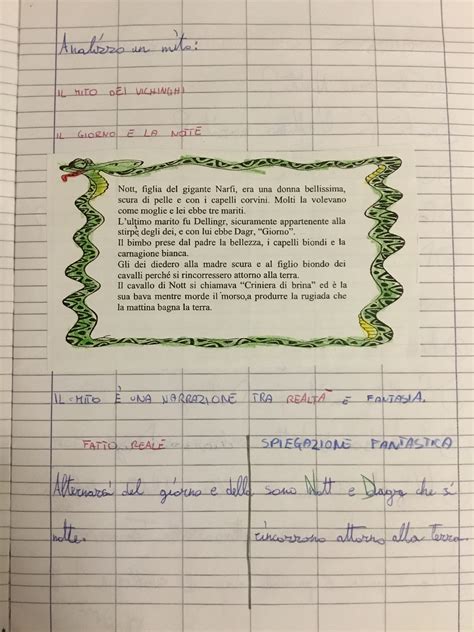 Analizzo un mito:
IL MITO DEI VICHINGHI
IL GIORNO E LA NOTTE
Nott, figlia del gigante Narfi, era una donna bellissima,
scura di pelle e con i capelli corvini. Molti la volevano
come moglie e lei ebbe tre mariti.
L'ultimo marito fu Dellingr, sicuramente appartenente alla
stirpe degli dei, e con lui ebbe Dagr, “Giorno”.
Il bimbo prese dal padre la bellezza, i capelli biondi e la
carnagione bianca.
Gli dei diedero alla madre scura e al figlio biondo dei
cavalli perché si rincorressero attorno alla terra.
Il cavallo di Nott si chiamava “Criniera di brina” ed è la
sua bava mentre morde il morso,a produrre la rugiada che
la mattina bagna la terra.
IL MITO È UNA NARRAZIONE TRA REALTÀ E FANTASIA.
FATTO REALE
Alternarsi del giorno e della
notte.
SPIEGAZIONE FANTASTICA
sono Nott e Dagr che si
rincorrono attorno alla terra.